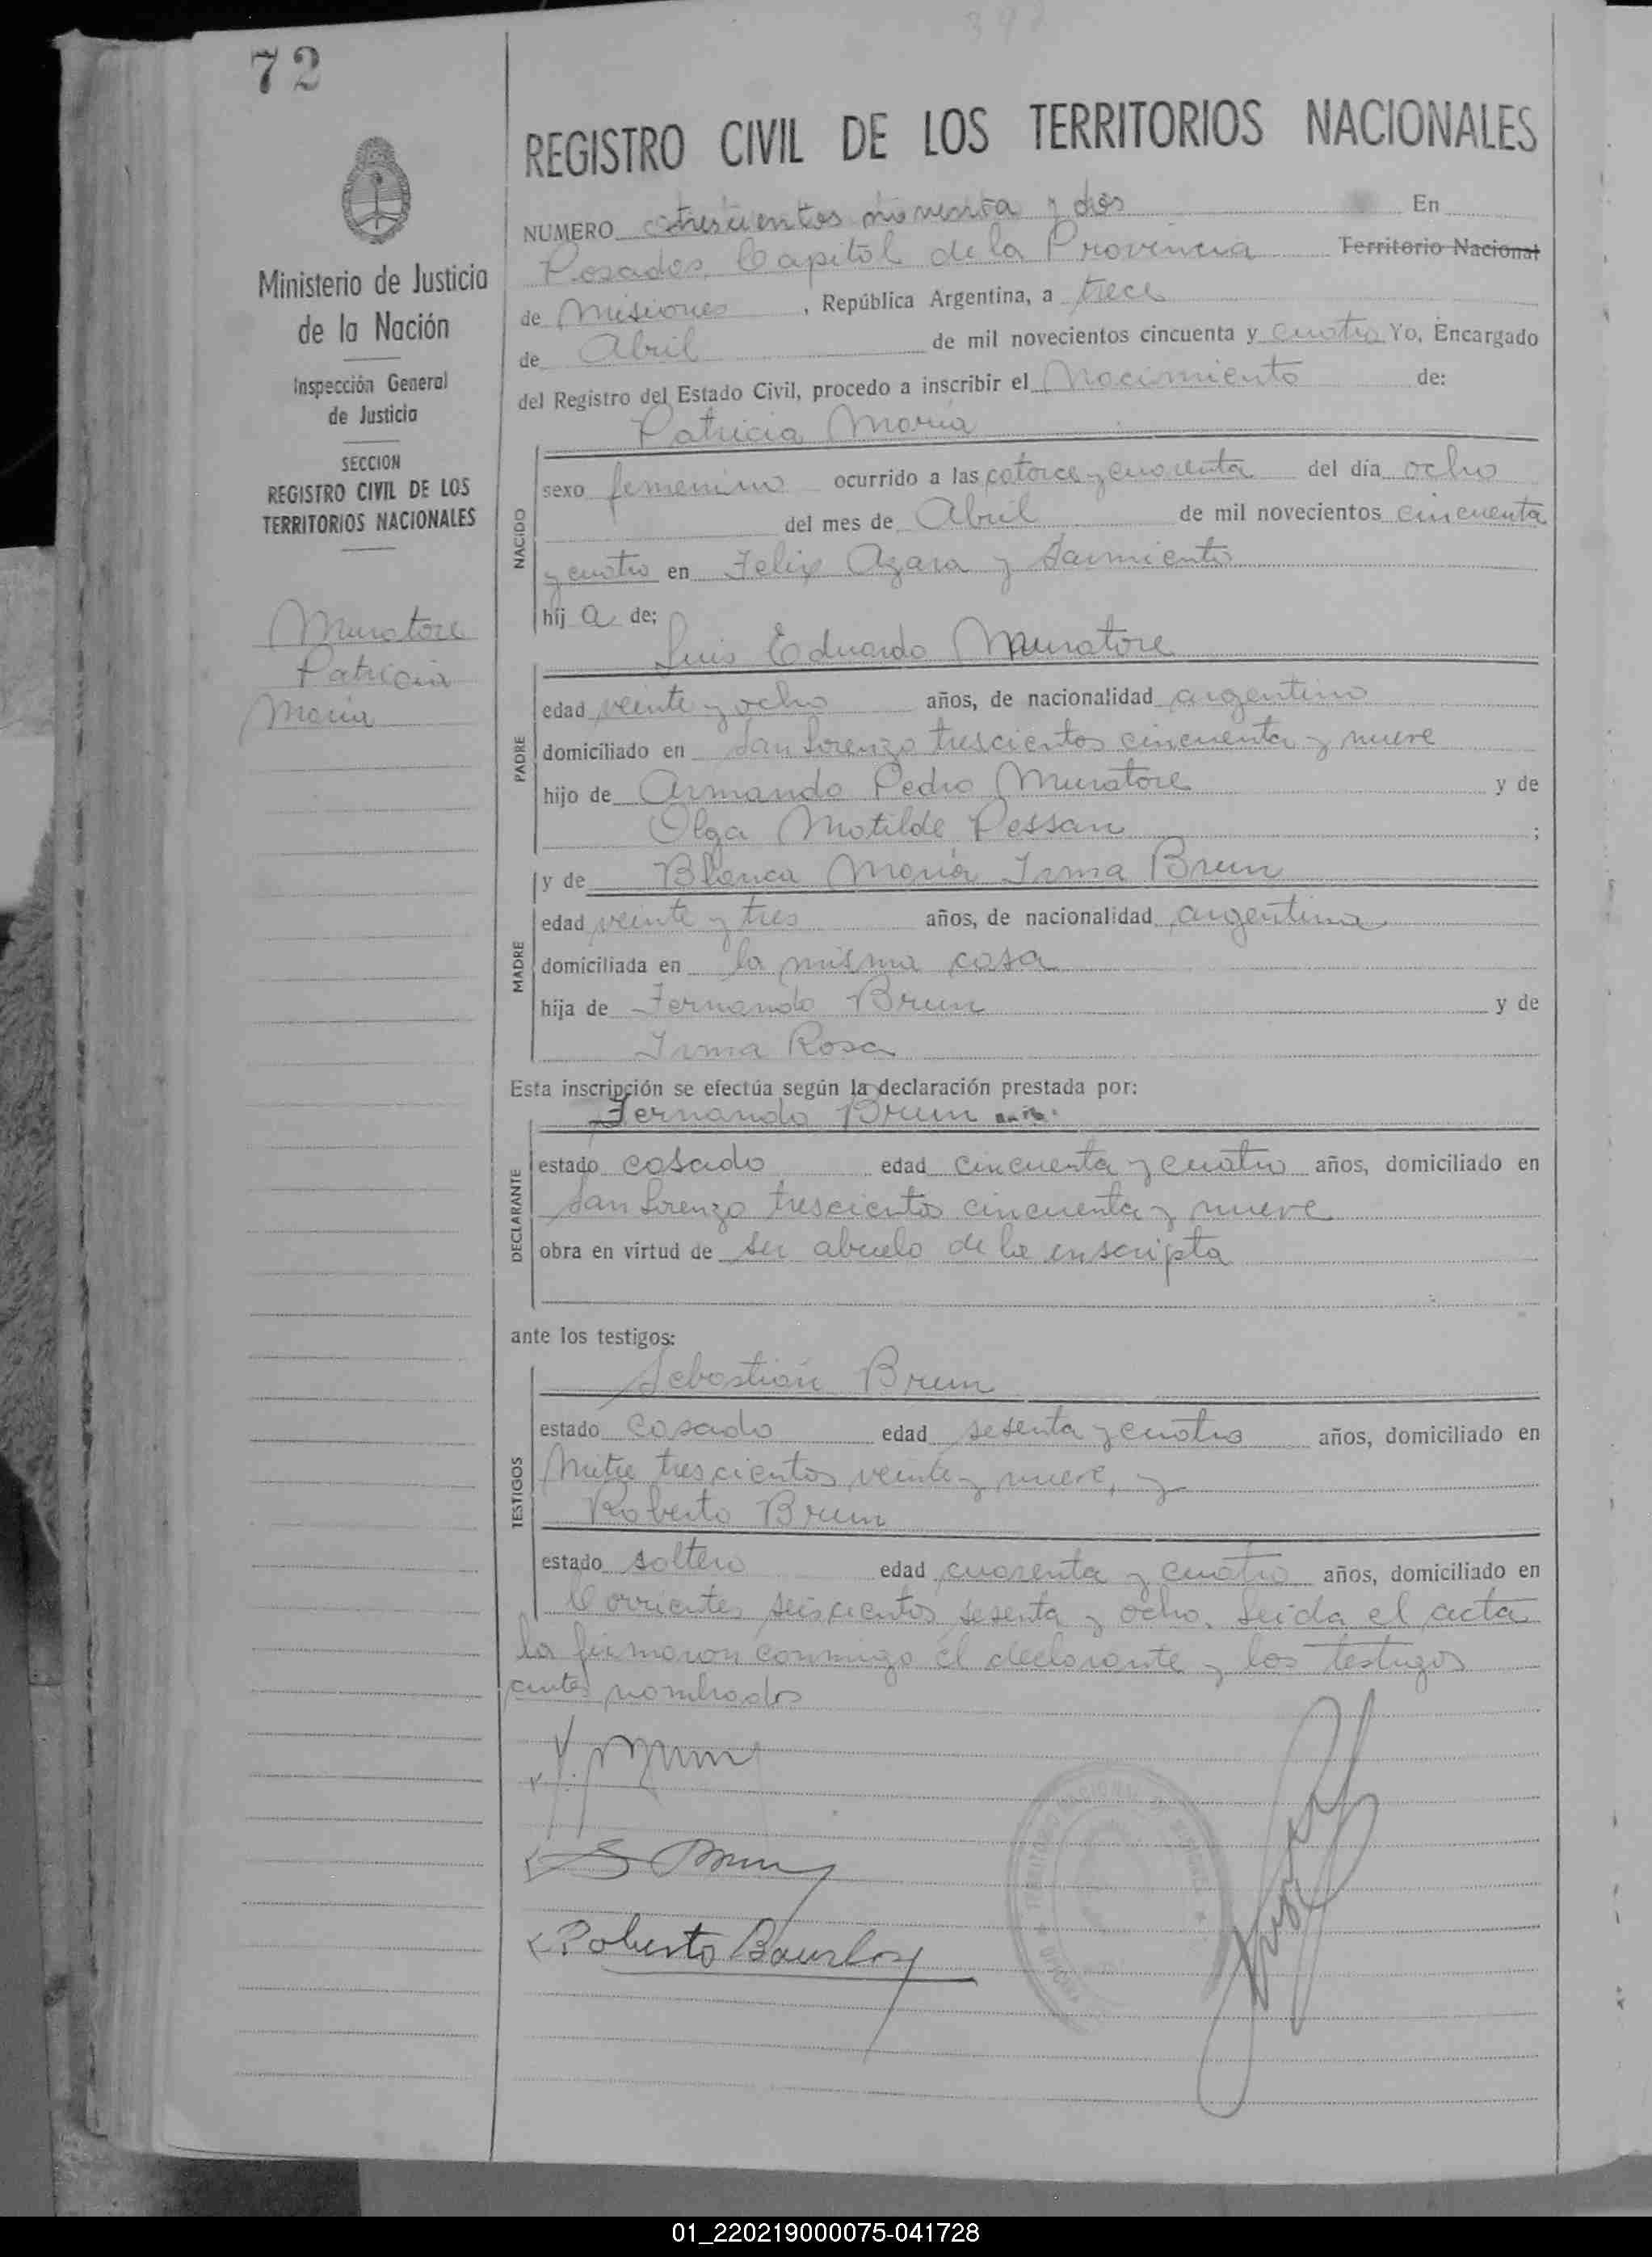 392
72
REGISTRO CIVIL DE LOS TERRITORIOS NACIONALES
Ministerio de Justicia
de la Nación
Inspección General
de Justicia
SECCION
REGISTRO CIVIL DE LOS
TERRITORIOS NACIONALES
Muratore
Patricia
María
NUMERO trescientos noventa y dos En
Posadas, Capital de la Provincia Territorio Nacional
de Misiones, República Argentina, a trece
de Abril de mil novecientos cincuenta y cuatro Yo, Encargado
del Registro del Estado Civil, procedo a inscribir el Nacimiento de:
Patricia María
NACIDO
sexo femenino ocurrido a las catorce y cuarenta del día ocho
del mes de Abril de mil novecientos cincuenta
y cuatro en Felix Azara y Sarmiento
hij a de;
Luis Eduardo Muratore
PADRE
edad veinte y ocho años, de nacionalidad argentino
domiciliado en San Lorenzo trescientos cincuenta y nueve
hijo de Armando Pedro Muratore y de
Olga Matilde Pessan ;
y de Blanca María Irma Brun
MADRE
edad veinte y tres años, de nacionalidad argentina
domiciliada en la misma casa
hija de Fernando Brun y de
Irma Rosa
Esta inscripción se efectúa según la declaración prestada por:
Fernando Brun
DECLARANTE
estado casado edad cincuenta y cuatro años, domiciliado en
San Lorenzo trescientos cincuenta y nueve
obra en virtud de ser abuelo de la inscripta
ante los testigos:
Sebastián Brun
TESTIGOS
estado casado edad sesenta y cuatro años, domiciliado en
Mitre trescientos veinte y nueve, y
Roberto Brun
estado soltero edad cuarenta y cuatro años, domiciliado en
Corrientes seiscientos sesenta y ocho. Leida el acta
la firmaron conmigo el declarante y los testigos
antes nombrados
S Brun
Roberto
01_220219000075-041728